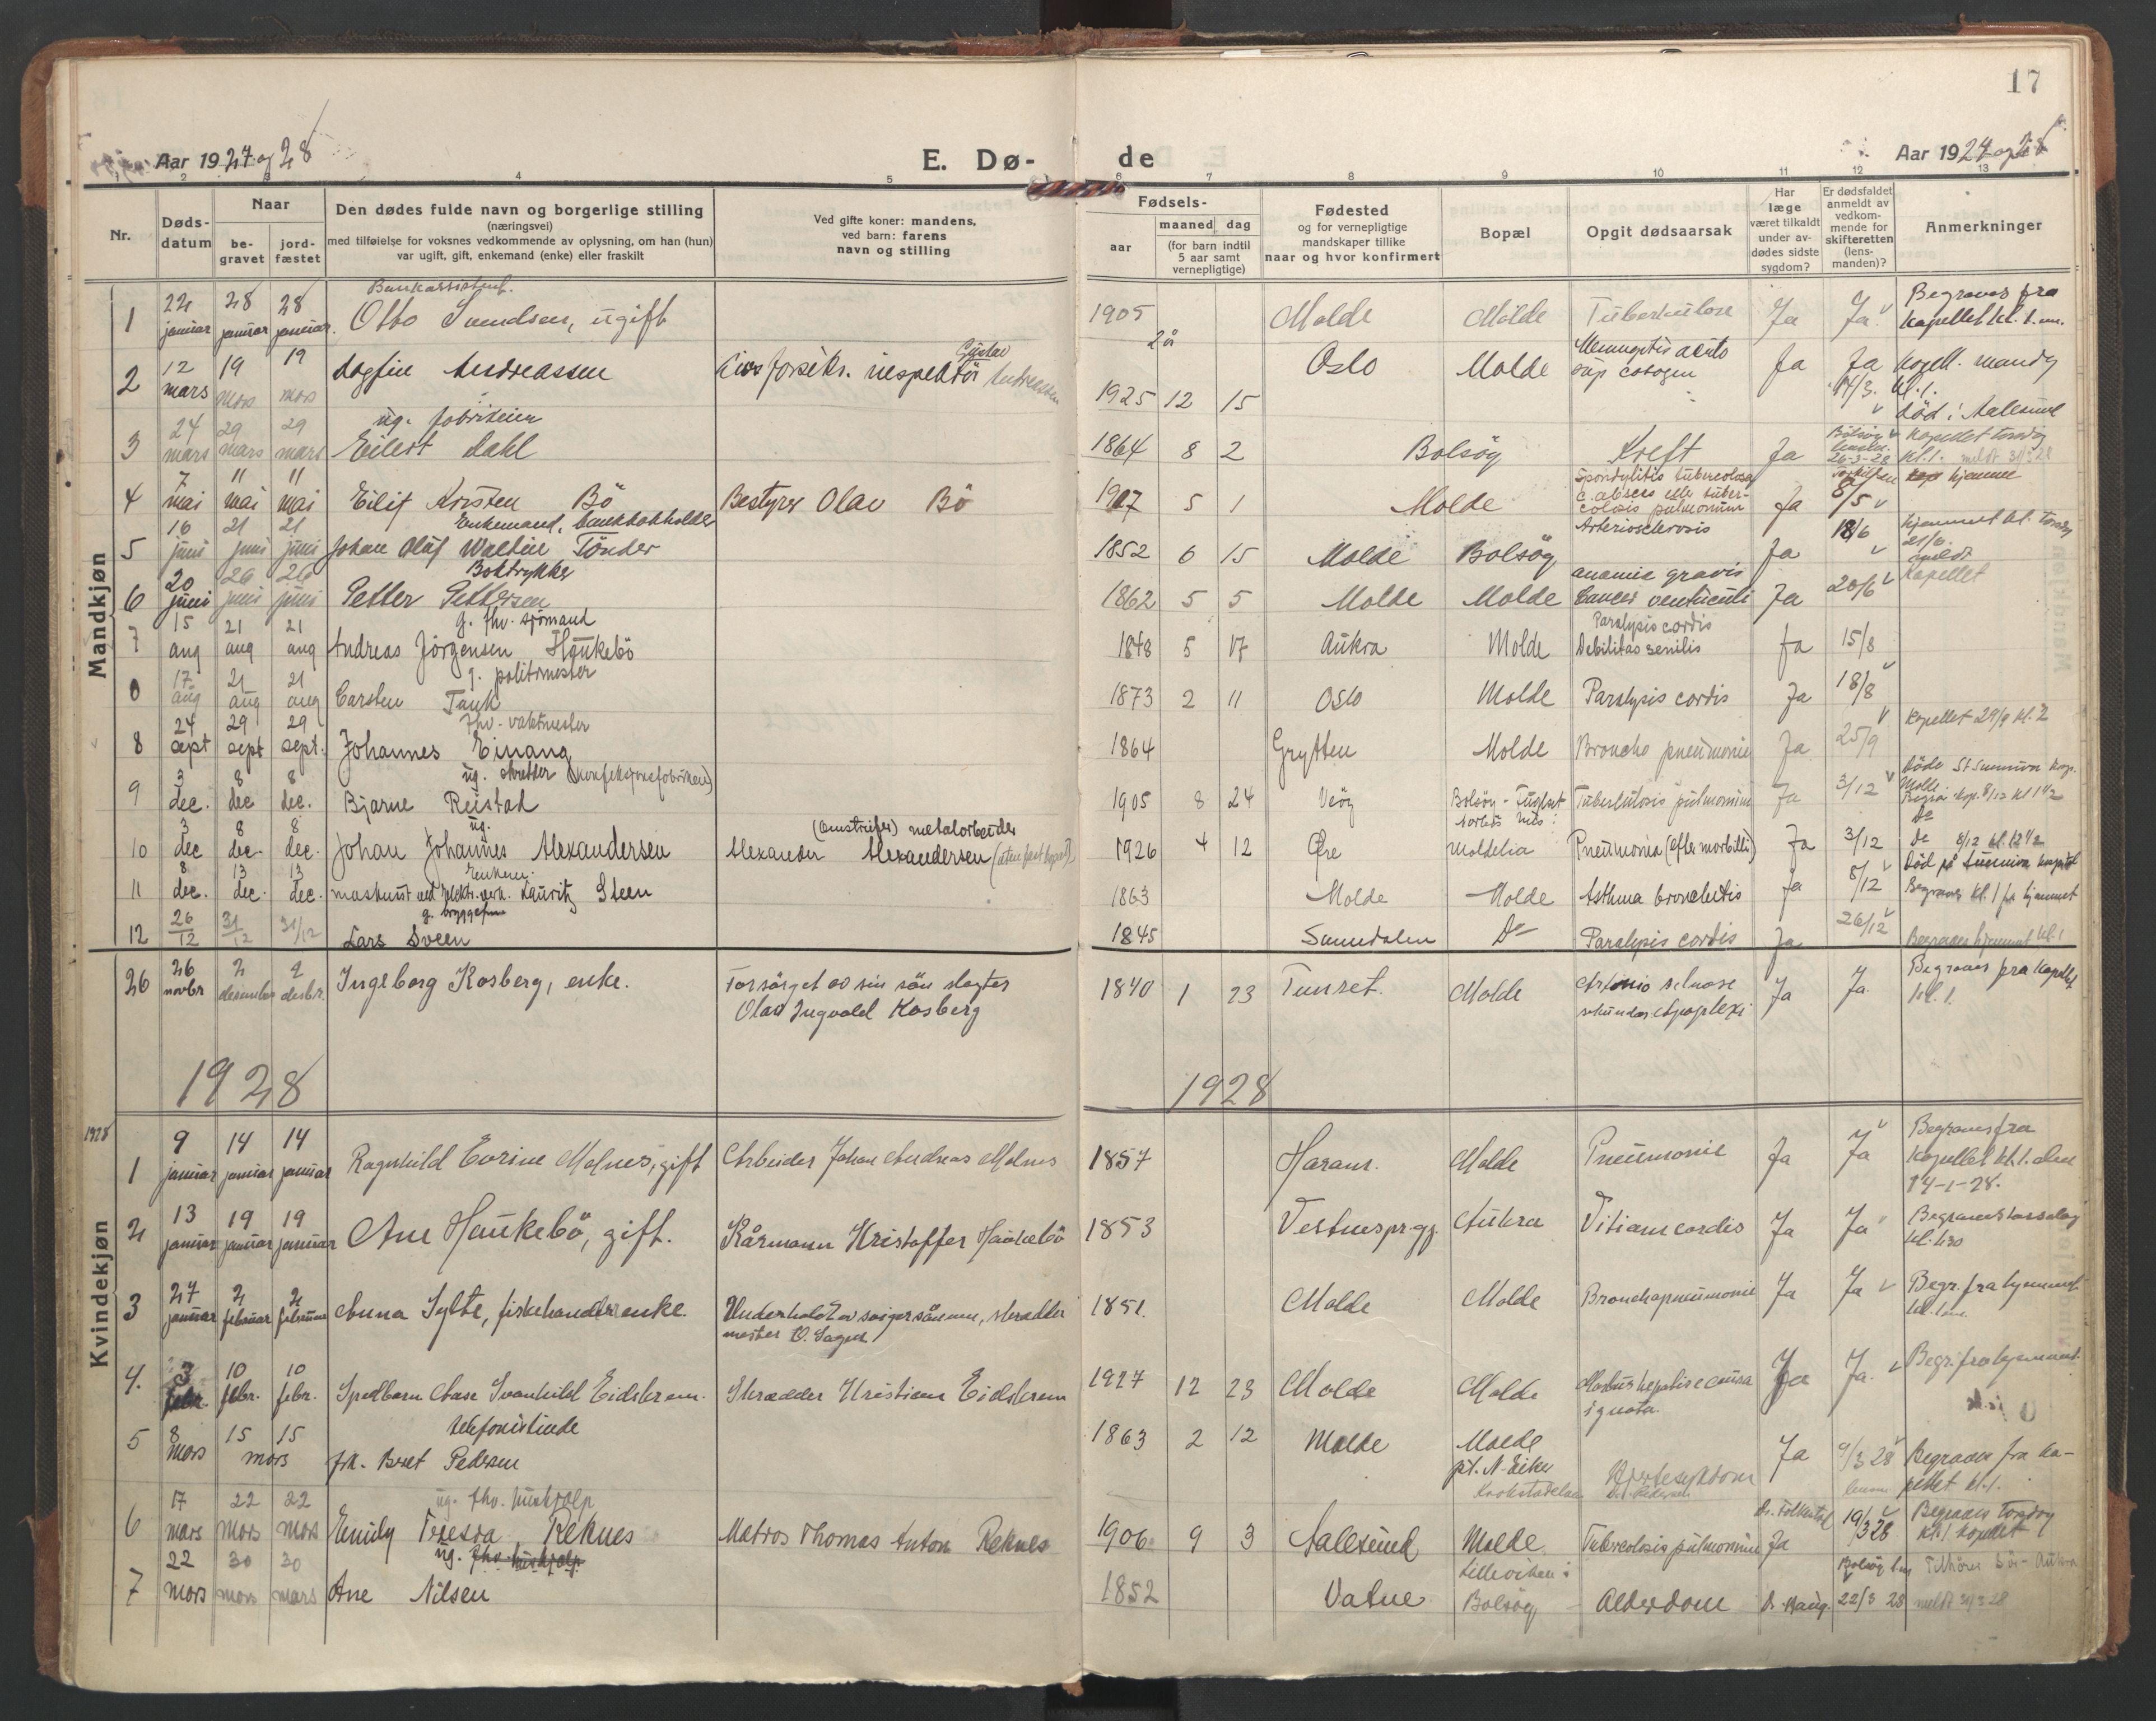 17
Aar 1927 og 28
E. Dø-
de
Aar 1927 og 28
1 2 3 4 5 6 7 8 9 10 11 12 13
Nr.
Døds-
datum
Naar
be-
gravet
jord-
fæstet
Den dødes fulde navn og borgerlige stilling
(næringsvei)
med tilføielse for voksnes vedkommende av oplysning, om han (hun)
var ugift, gift, enkemand (enke) eller fraskilt
Ved gifte koner: mandens,
ved barn: farens
navn og stilling
Fødsels-
aar
maaned dag
(for barn indtil
5 aar samt
vernepligtige)
Fødested
og for vernepligtige
mandskaper tillike
naar og hvor konfirmert
Bopæl
Opgit dødsaarsak
Har
læge
været tilkaldt
under av-
dødes sidste
sygdom?
Er dødsfaldet
anmeldt av
vedkom-
mende for
skifteretten
(lens-
manden)?
Anmerkninger
Mandkjøn
Bankassistent.
1 22 januar 28 januar 28 januar. Otto Sundsen, ugift 1905 Molde Molde Tuberkulose Ja Ja Begraves fra
kapellet kl. 1.
2 år
2 12 mars 19 mars 19 mars Dagfin Andreassen Livsforsikr. inspektør Gustav Andreassen 1925 12 15 Oslo Molde Ja Ja 14/3. Kapell. mandag
kl. 1.
ug. fabrikeier
3 24 mars 29 mars 29 mars Eilert Dahl 1864 8 2 Bolsøy Kreft Ja 26-3-28 Død i Aalesund
Kapellet torsdag
kl. 1.
4 7 mai 11 mai 11 mai Eilif Korsten Bö Bestyrer Olav Bö 1907 5 1 Molde Spondylitis tuberculosa
Ja 8/5 hjemme
Enkemand, bankbokholder
5 16 juni 21 juni 21 juni Johan Oluf Waltin Tönder 1852 6 15 Molde Bolsöy Arteriosclerosis Ja 18/6 hjemmet kl. torsdag
21/6.
Boktrykker
6 20 juni 26 juni 26 juni Petter Pettersen 1862 5 5 Molde Molde anamia gravis
Cancer ventriculi Ja 20/6 Kapellet
g. fhv. sjömand
7 15 aug 21 aug 21 aug Andreas Jörgensen Haukebö 1848 5 17 Aukra Molde Paralysis cordis
Debilitas senilis Ja 15/8
g. politimester
17 aug 21 aug 21 aug Carsten Tank 1873 2 11 Oslo Molde Paralysis cordis Ja 18/8
fhv. vaktmester
8 24 sept 29 sept 29 sept. Johannes Einang 1864 Grytten Molde Broncho pneumonie Ja 25/9 Kapellet 29/9 kl. 2
ug. skredder (konfeksjonsfabriken)
9 3 dec. 8 dec 8 dec. Bjarne Reistad 1905 8 24 Veöy Bolsöy Tuberkulosis pulmonum Ja 3/12 Döde St Sunniva hosp.
Molde
ug.
10 3 dec 8 dec. 8 dec. Johan Johannes Alexandersen (Omstreifer) metalarbeider
Alexander Alexandersen (uten fast bopæl) 1926 4 12 Öre Moldelia Pneumonia (efter morbilli) Ja 3/12 Do 8/12 kl. 12 1/2
Enkem.
11 8 dec. 13 dec. 13 dec. maskinist ved elektr. verk. Lauritz Steen 1863 Molde Molde Asthma bronchitis Ja 8/12 Död på Sunniva hospital
Begraves kl. 1 fra hjemmet
12 26/12 31/12 31/12 Lars Sveen 1845 Sunndalen Do Paralysis cordis Ja 26/12 Begraves hjemmet kl. 1
26 26 novbr 2 desember 2 desbr. Ingeborg Kosberg, enke. Forsörget av sin sön slagter
Olav Ingvald Kosberg 1840 1 23 Tunset. Molde Apoplexi Ja Ja. Begraves fra kapellet
kl. 1.
1928
1928
Kvindekjøn
1928
1 9 januar 14 januar 14 januar Ragnhild Evrine Malnes, gift Arbeider Johan Andreas Malnes 1857 Haram. Molde Pneumonie Ja Ja Begraves fra
kapellet kl. 1. den
14-1-28.
2 13 januar 19 januar 19 januar Ane Haukebö, gift. Kårmann Kristoffer Haukebö 1853 Vestnes pr.gj. Aukra Vitium cordis Ja Ja Begraves torsdag
kl. 1.30
3 27 januar 2 februar 2 februar Anna Sylte, fiskehandlerenke. Underholdt av svigersönnen, skrædder
mester 1851. Molde Molde Bronchopneumonie Ja Ja Begr. fra hjemmet
4. 3 febr. 10 febr. 10 febr. Spedbarn Aase Svanhild Eidskrem. Skrædder Kristian Eidskrem 1927 12 23 Molde Molde Morbus hepatis e causa
ignota. Ja Ja. Begr. fra hjemmet
telefonistinde
5 8 mars 15 15 mars frk. Beret Pedersen 1863 2 12 Molde Molde
pt. N-Eiker
Krokstadelva Hjertesykdom
Ja 9/3 28 Begraves fra ka-
pellet kl. 1.
ug. fhv. hushjelp
6 17 mars 22 mars 22 mars Emily Teresia Reknes Matros Thomas Anton Reknes 1906 9 3 Aalesund Molde Tuberculosis pulmonum Ja 19/3 28 Begraves Torsdag
kl. 1 kapellet
ug. fhv. hushjelp
7 22 mars 30 mars 30 mars Ane Nilsen 1852 Vatne Lillevikan i
Bolsöy Alderdom Dr. Haug. 22/3 28 Tilhörer Sör-Aukra
meldt 31/3 28